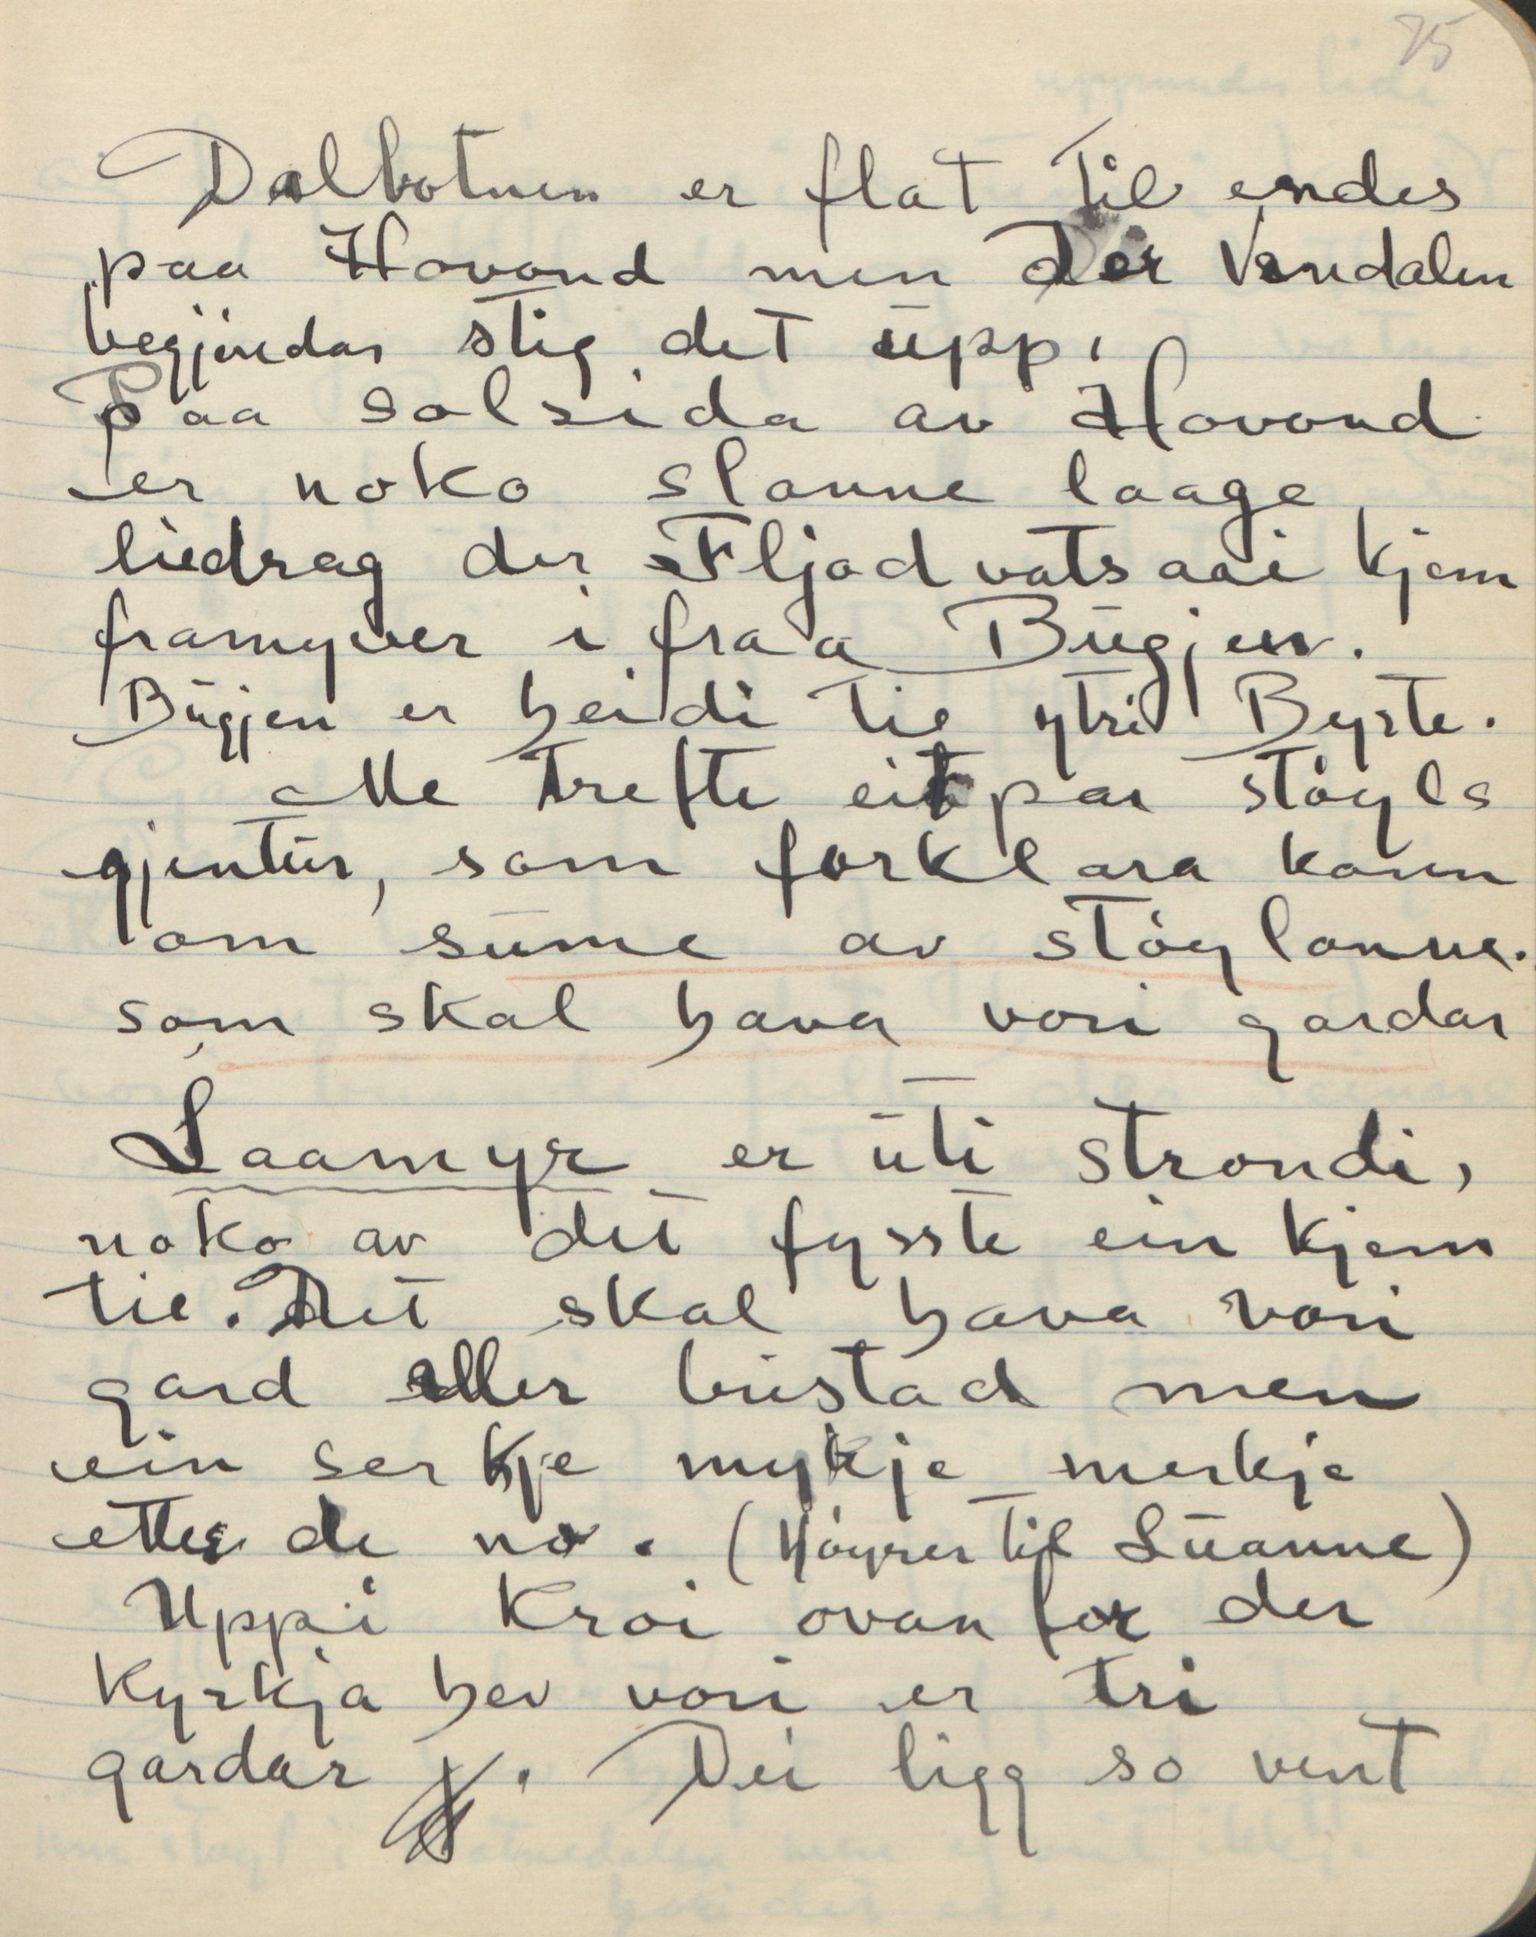 75
Dalbotnen er flat til endes
paa Hovond men der Vendalen
begjindar stig det upp.
Paa solsida av Hovond
er noko slanne laage
liedrag der Fljodvatsaai kjem
framyver i fraa Bugjen.
Bugjen er heidi tie ytri Byrte.
Me trefte eit par støyls
gjentur, som forklara kann
om sume av støylanne.
som skal hava vori gardar
Laamyr er uti strondi,
noko av det fysste ein kjem
tie. Det skal hava vori
gard eller bustad men
ein ser kje mykje merkje
ette de no. (Høyrer til Luanne)
Uppi Kroi ovanfor der
Kyrkja hev vori er tri
gardar. Dei ligg so vent